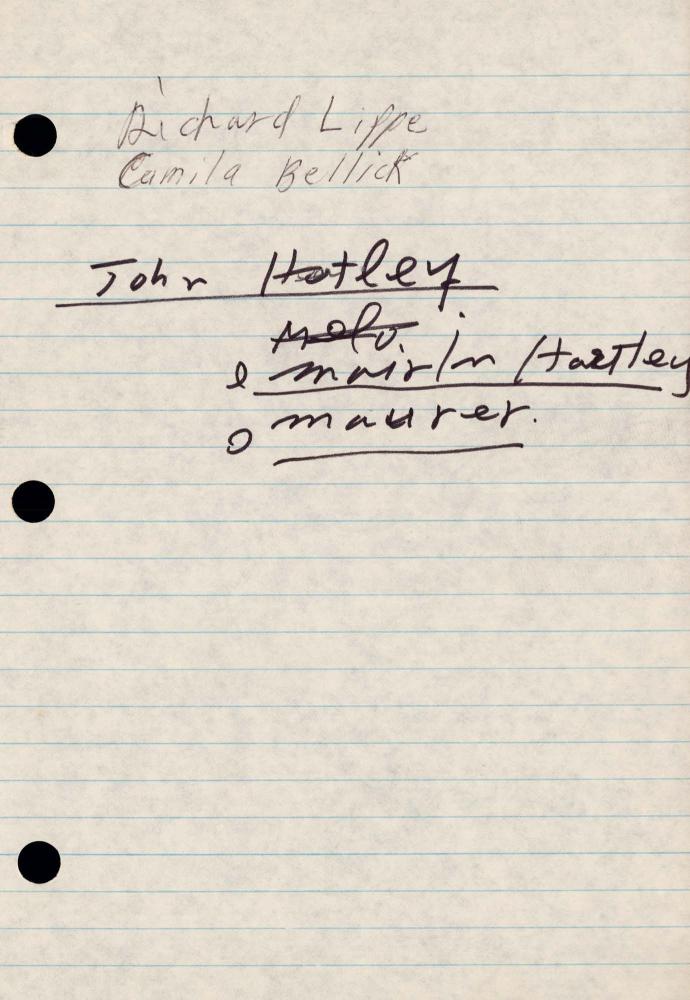 Richard Lippe
Camila Bellick
John Hatley
Hartley
maurer.